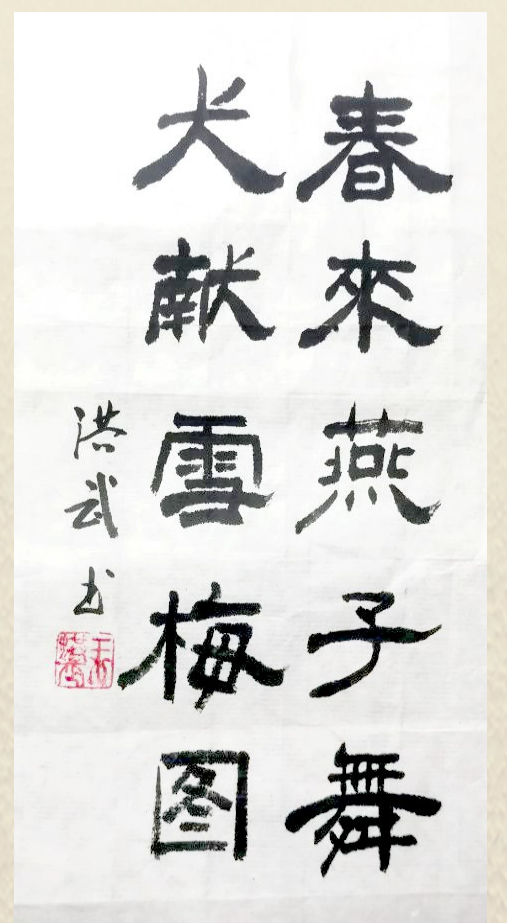 春來燕子舞
犬献雪梅图
洪武书